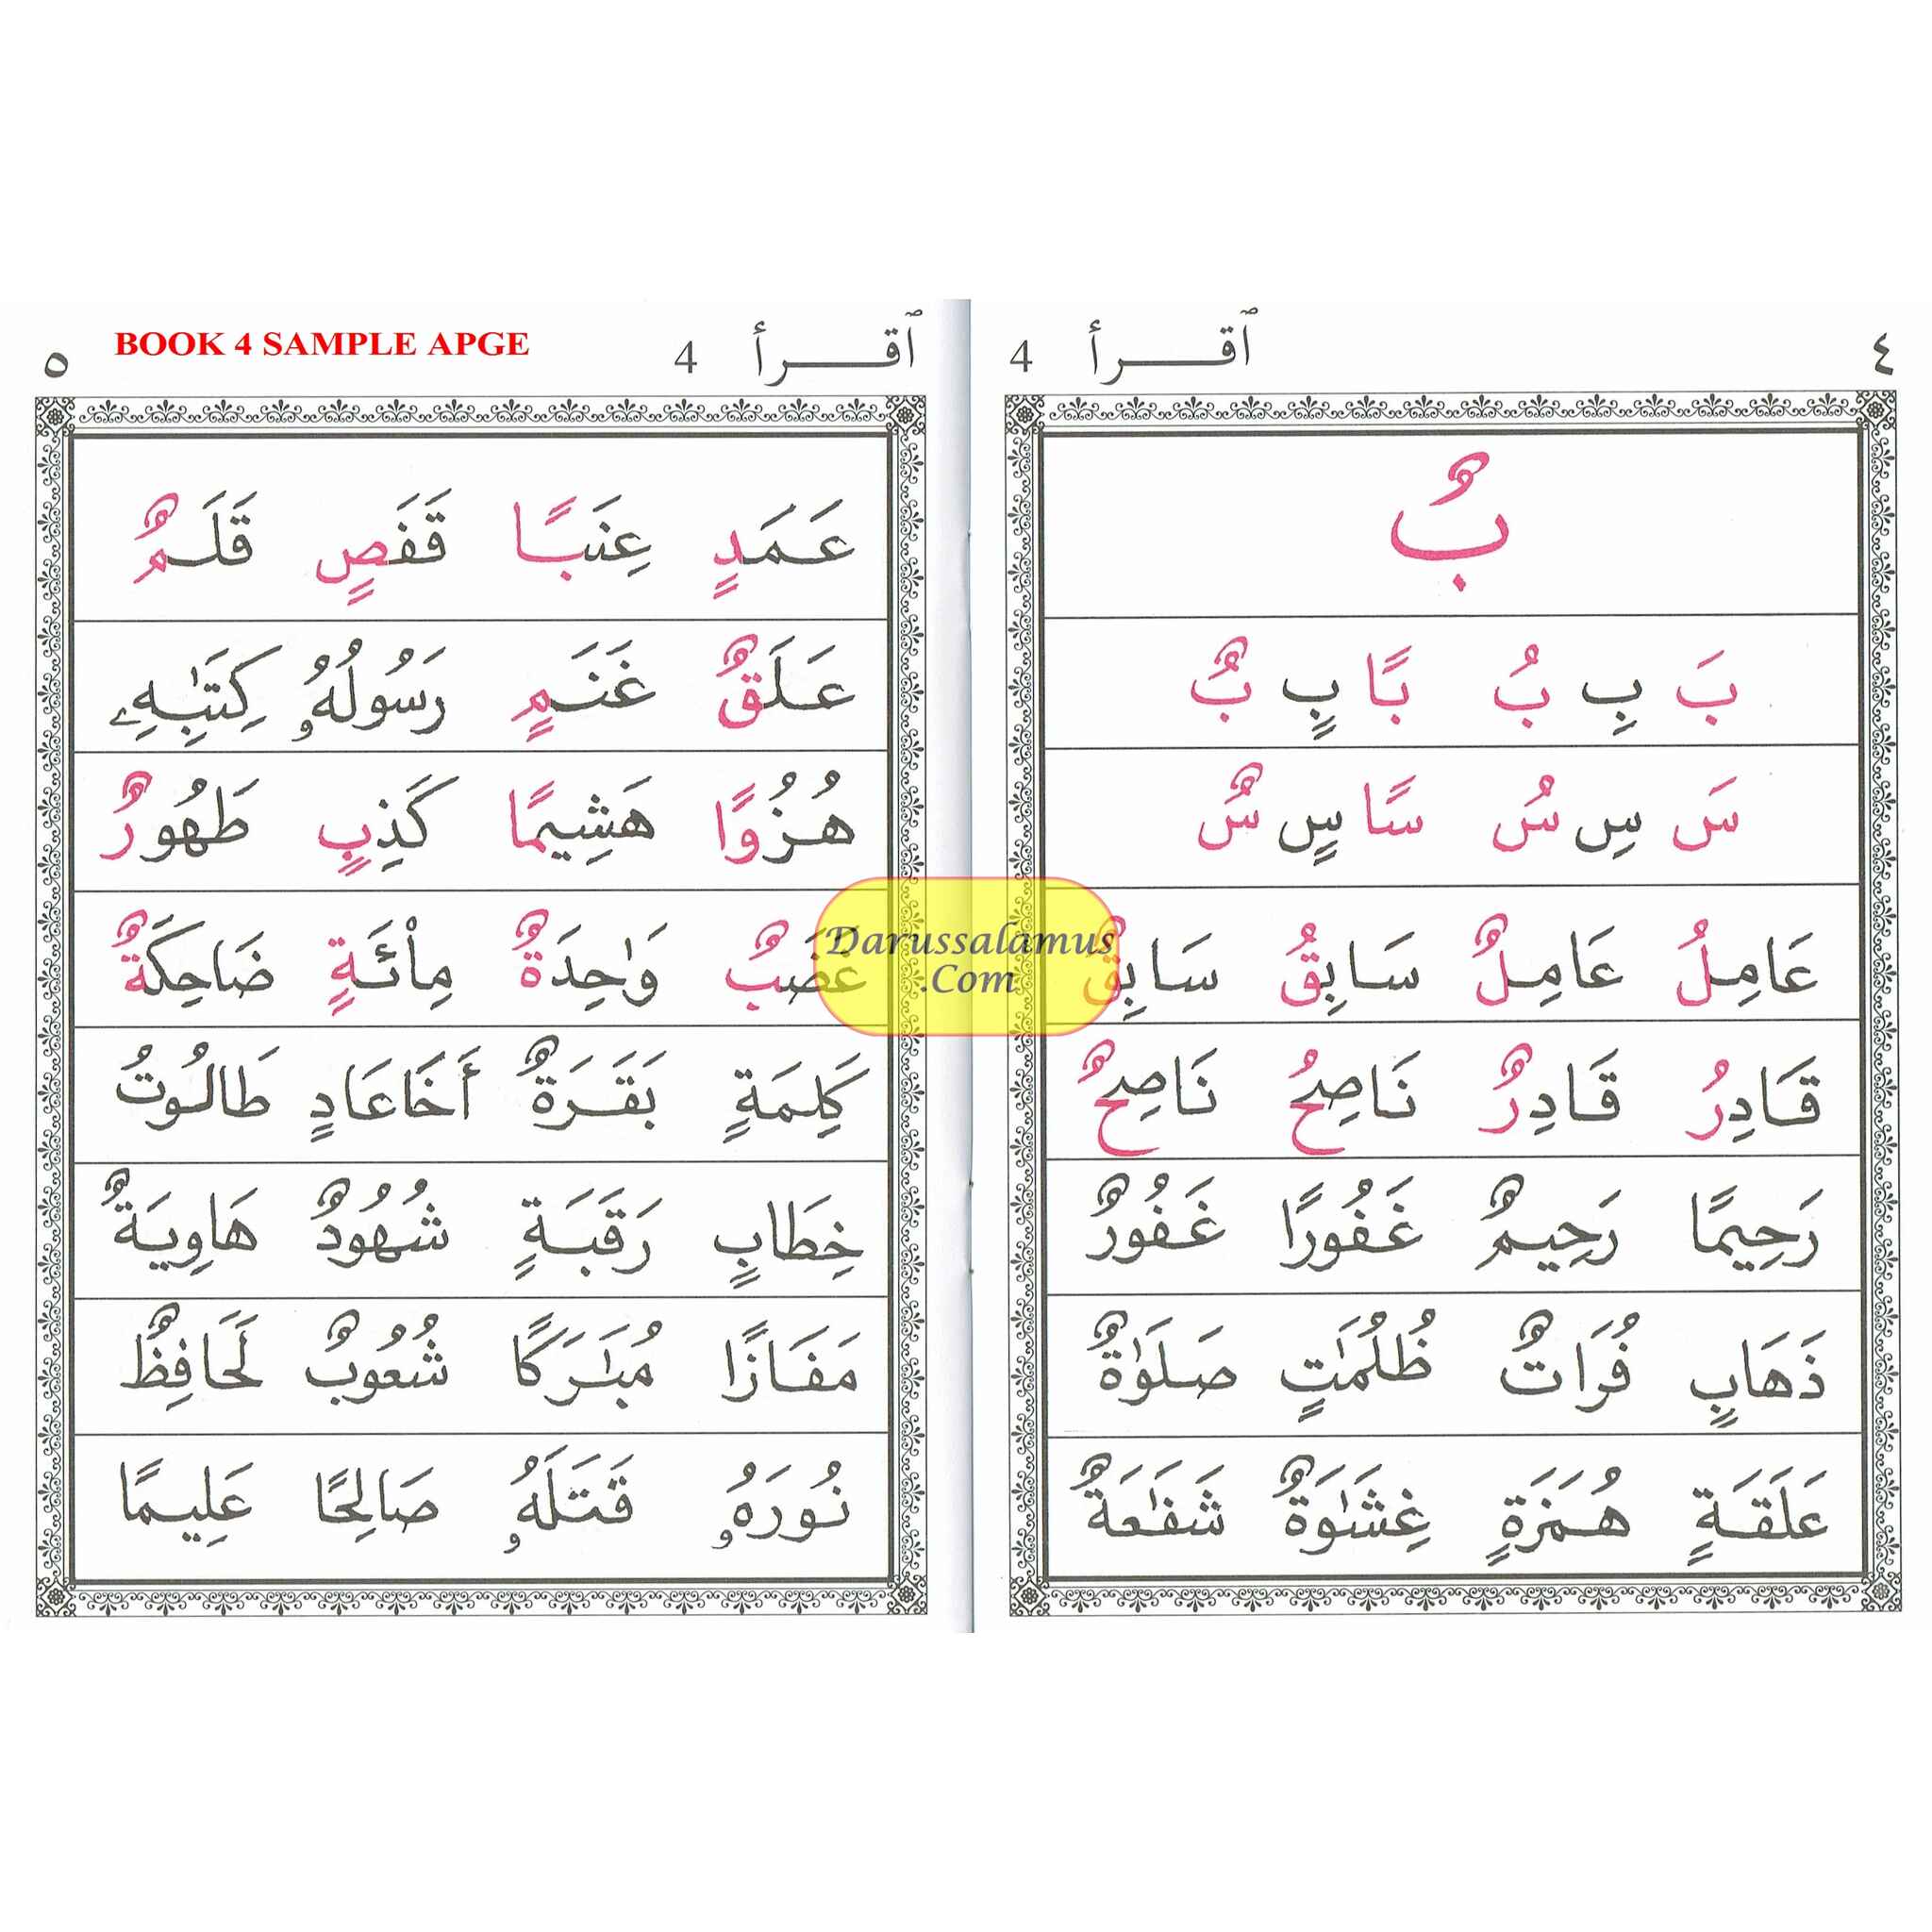 ٤ ٱقـــرأ 4
بٌ
بَ بِ بُ بًا بٍ بٌ
سَ سِ سُ سًا سٍ سٌ
عَامِلُ عَامِلٌ سَابِقُ سَابِقٌ
قَادِرُ قَادِرٌ نَاصِحُ نَاصِحٌ
رَحِيمًا رَحِيمٌ غَفُورًا غَفُورٌ
ذَهَابٍ فُرَاتٌ ظُلُمَٰتٍ صَلَوٰةٌ
عَلَقَةٍ هُمَزَةٍ غِشَٰوَةٌ شَفَٰعَةٌ
ٱقـــرأ 4 BOOK 4 SAMPLE APGE ٥
عَمَدٍ عِنَبًا قَفَصٍ قَلَمٌ
عَلَقٌ غَنَمٍ رَسُولُهُۥ كِتَٰبِهِۦ
هُزُوًا هَشِيمًا كَذِبٍ طَهُورٌ
غَضَبٌ وَٰحِدَةٌ مِا۟ئَةٍ ضَاحِكَةٌ
كَلِمَةٍ بَقَرَةٌ أَخَاعَادٍ طَالُوتُ
خِطَابٍ رَقَبَةٍ شُهُودٌ هَاوِيَةٌ
مَفَازًا مُبَٰرَكًا شُعُوبٌ لَحَافِظٌ
نُورَهُۥ قَتَلَهُۥ صَالِحًا عَلِيمًا
Darussalamus
.Com